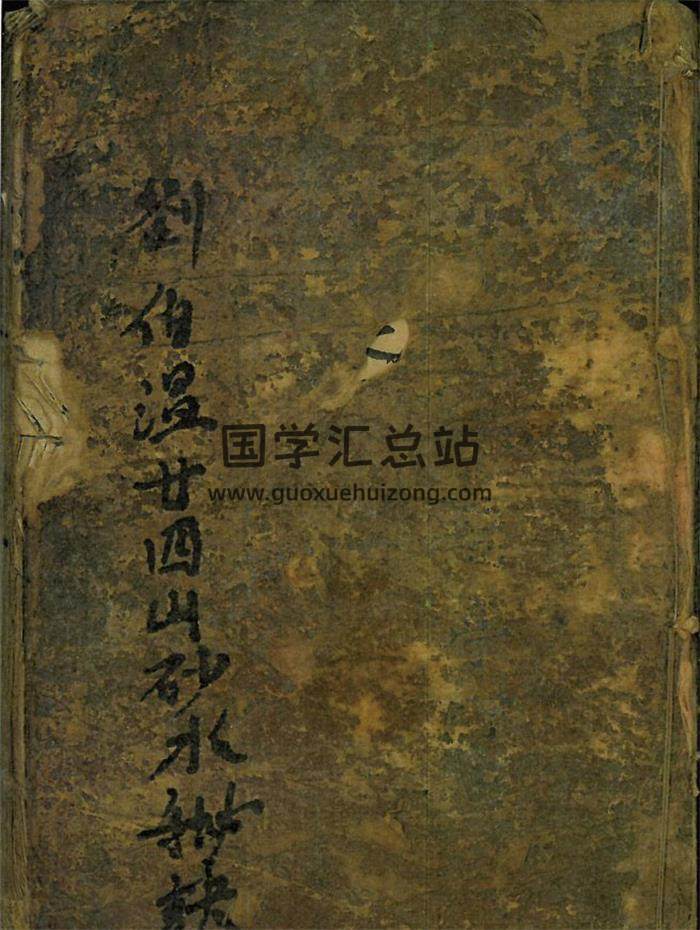 劉伯温廿四山砂水秘訣
国学汇总站
www.guoxuehuizong.com